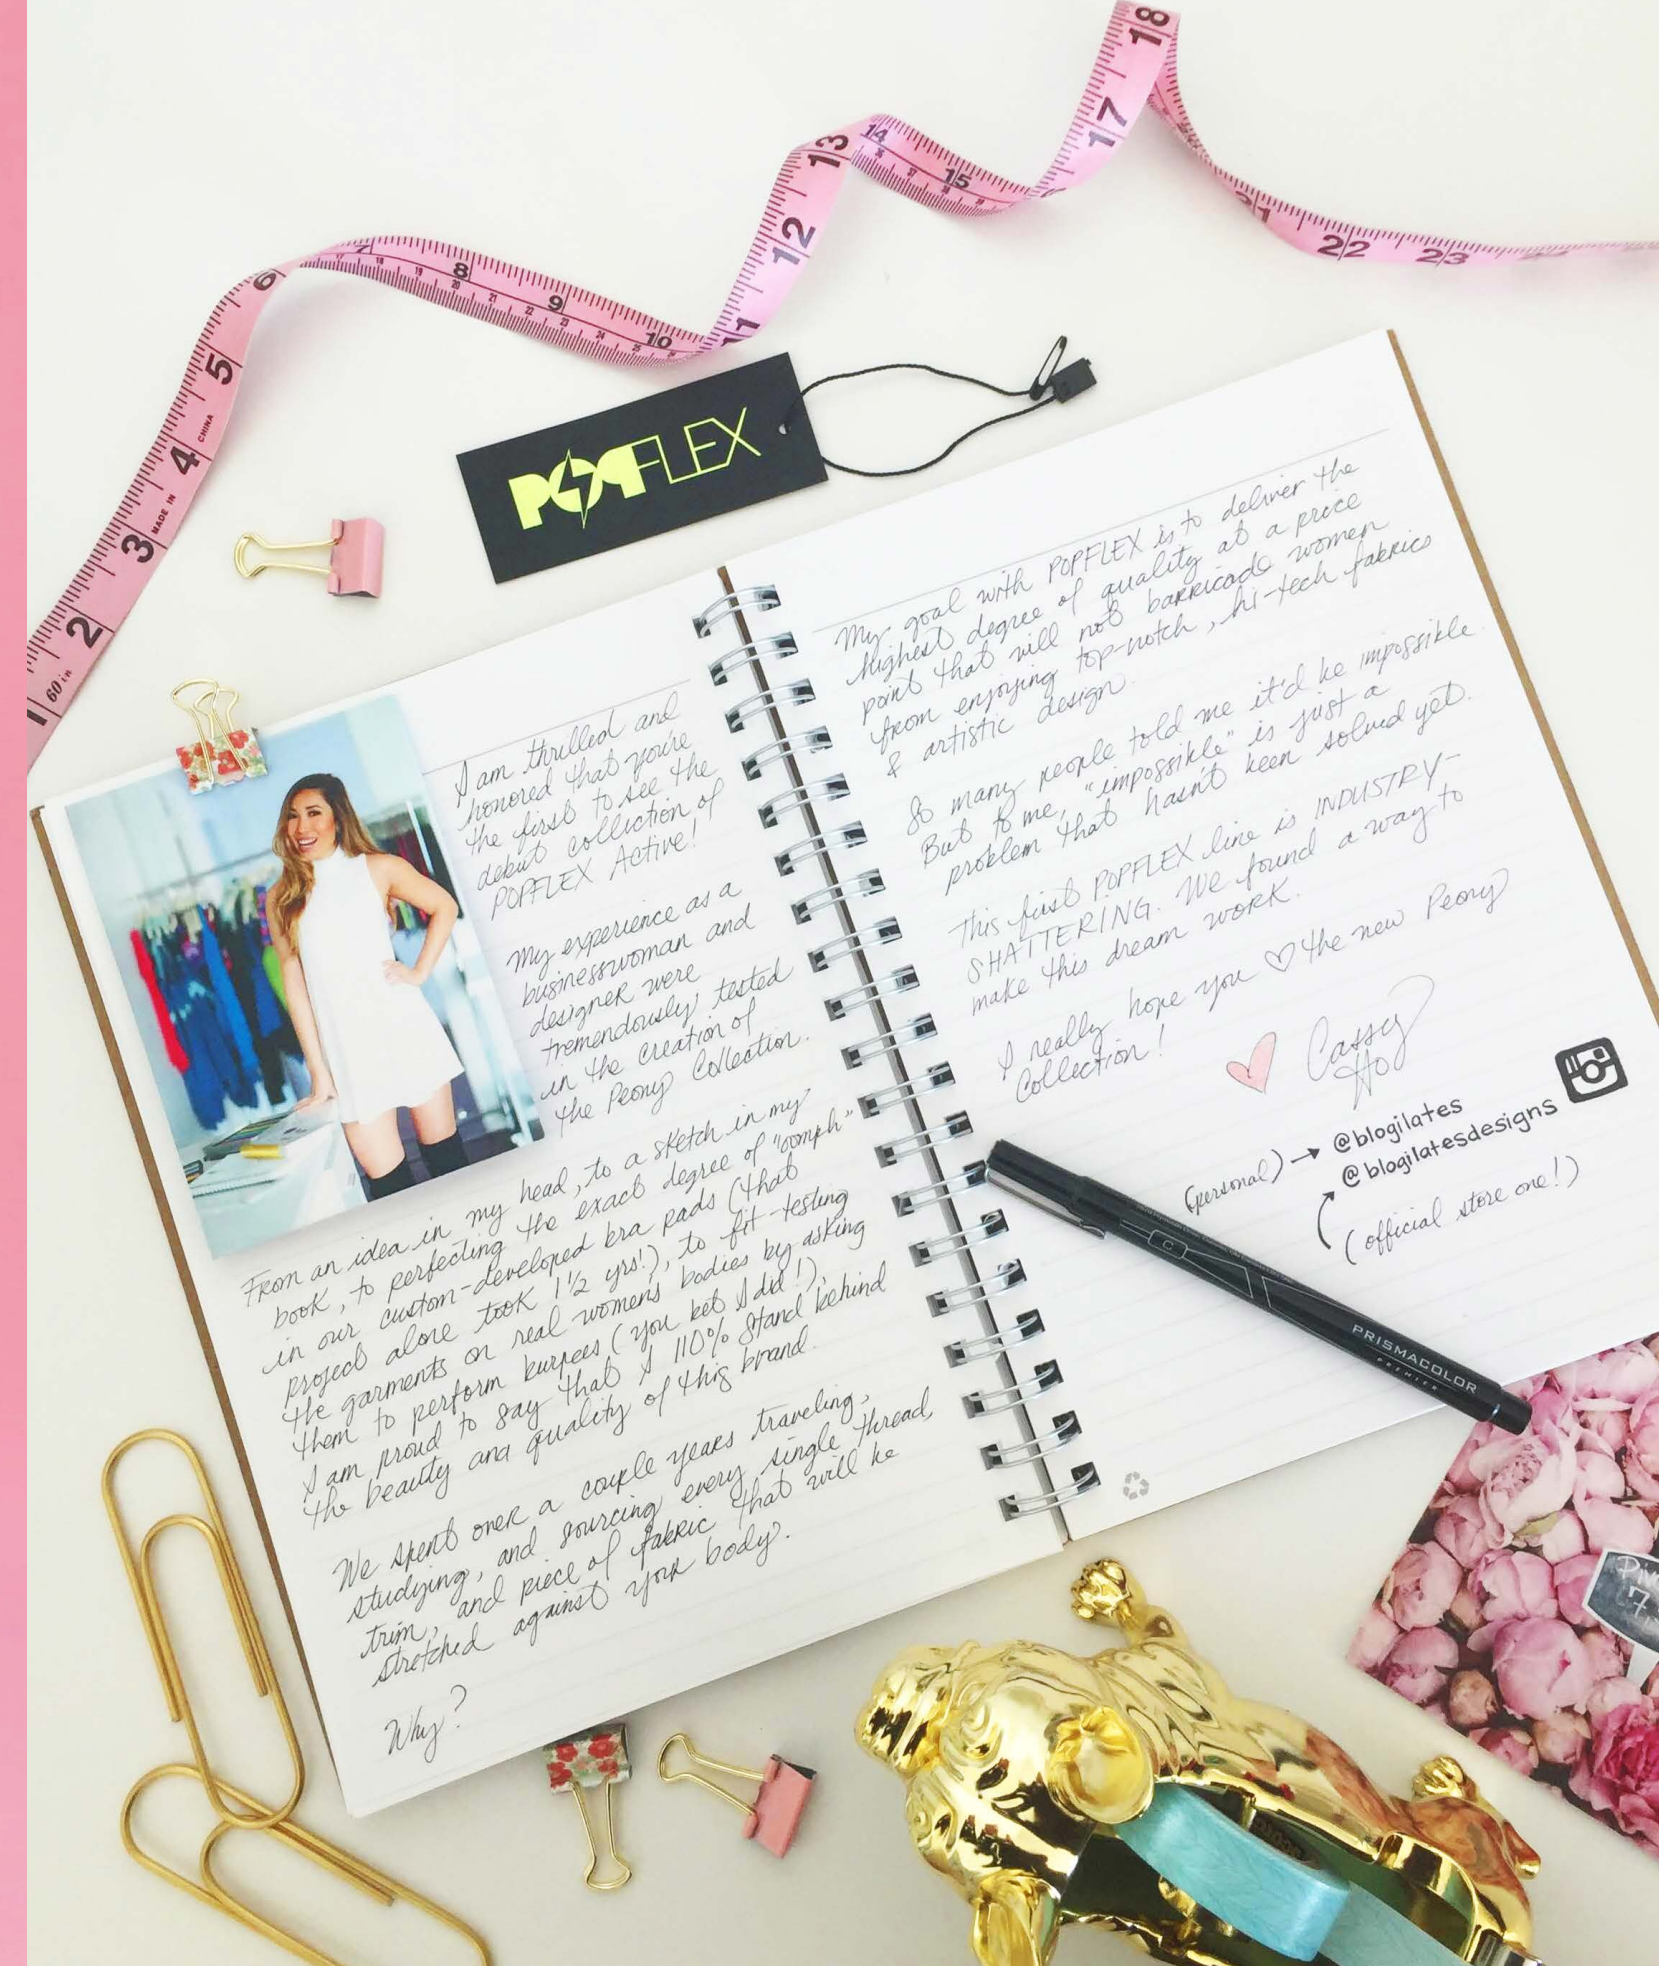 18
17
13
14
36
37
15
38
39
12
21
22
23
6
7
17
18
19
8
20
21
9
22
23
24
10
25
11
5
4
CHINA
MADE IN
3
2
60 in
1
POPFLEX
I am thrilled and
honored that you're
the first to see the
debut collection of
POPFLEX Active!
My experience as a
businesswoman and
designer were
tremendously tested
in the creation of
the Peony Collection.
From an idea in my head, to a sketch in my
book, to perfecting the exact degree of "oomph"
in our custom-developed bra pads (that
project alone took 1 1/2 yrs!), to fit-testing
the garments on real women's bodies by asking
them to perform burpees (you bet I did!),
I am proud to say that I 110% stand behind
the beauty and quality of this brand.
We spent over a couple years traveling,
studying, and sourcing every single thread,
trim, and piece of fabric that will be
stretched against your body.
Why?
My goal with POPFLEX is to deliver the
highest degree of quality at a price
point that will not barricade women
from enjoying top-notch, hi-tech fabrics
& artistic design.
So many people told me it'd be impossible.
But to me, "impossible" is just a
problem that hasn't been solved yet.
This first POPFLEX line is INDUSTRY-
SHATTERING. We found a way to
make this dream work.
I really hope you ♡ the new Peony
Collection!
Cassey
Ho
(personal) → @blogilates
@blogilatesdesigns
(official store one!)
PRISMACOLOR
PREMIER
7